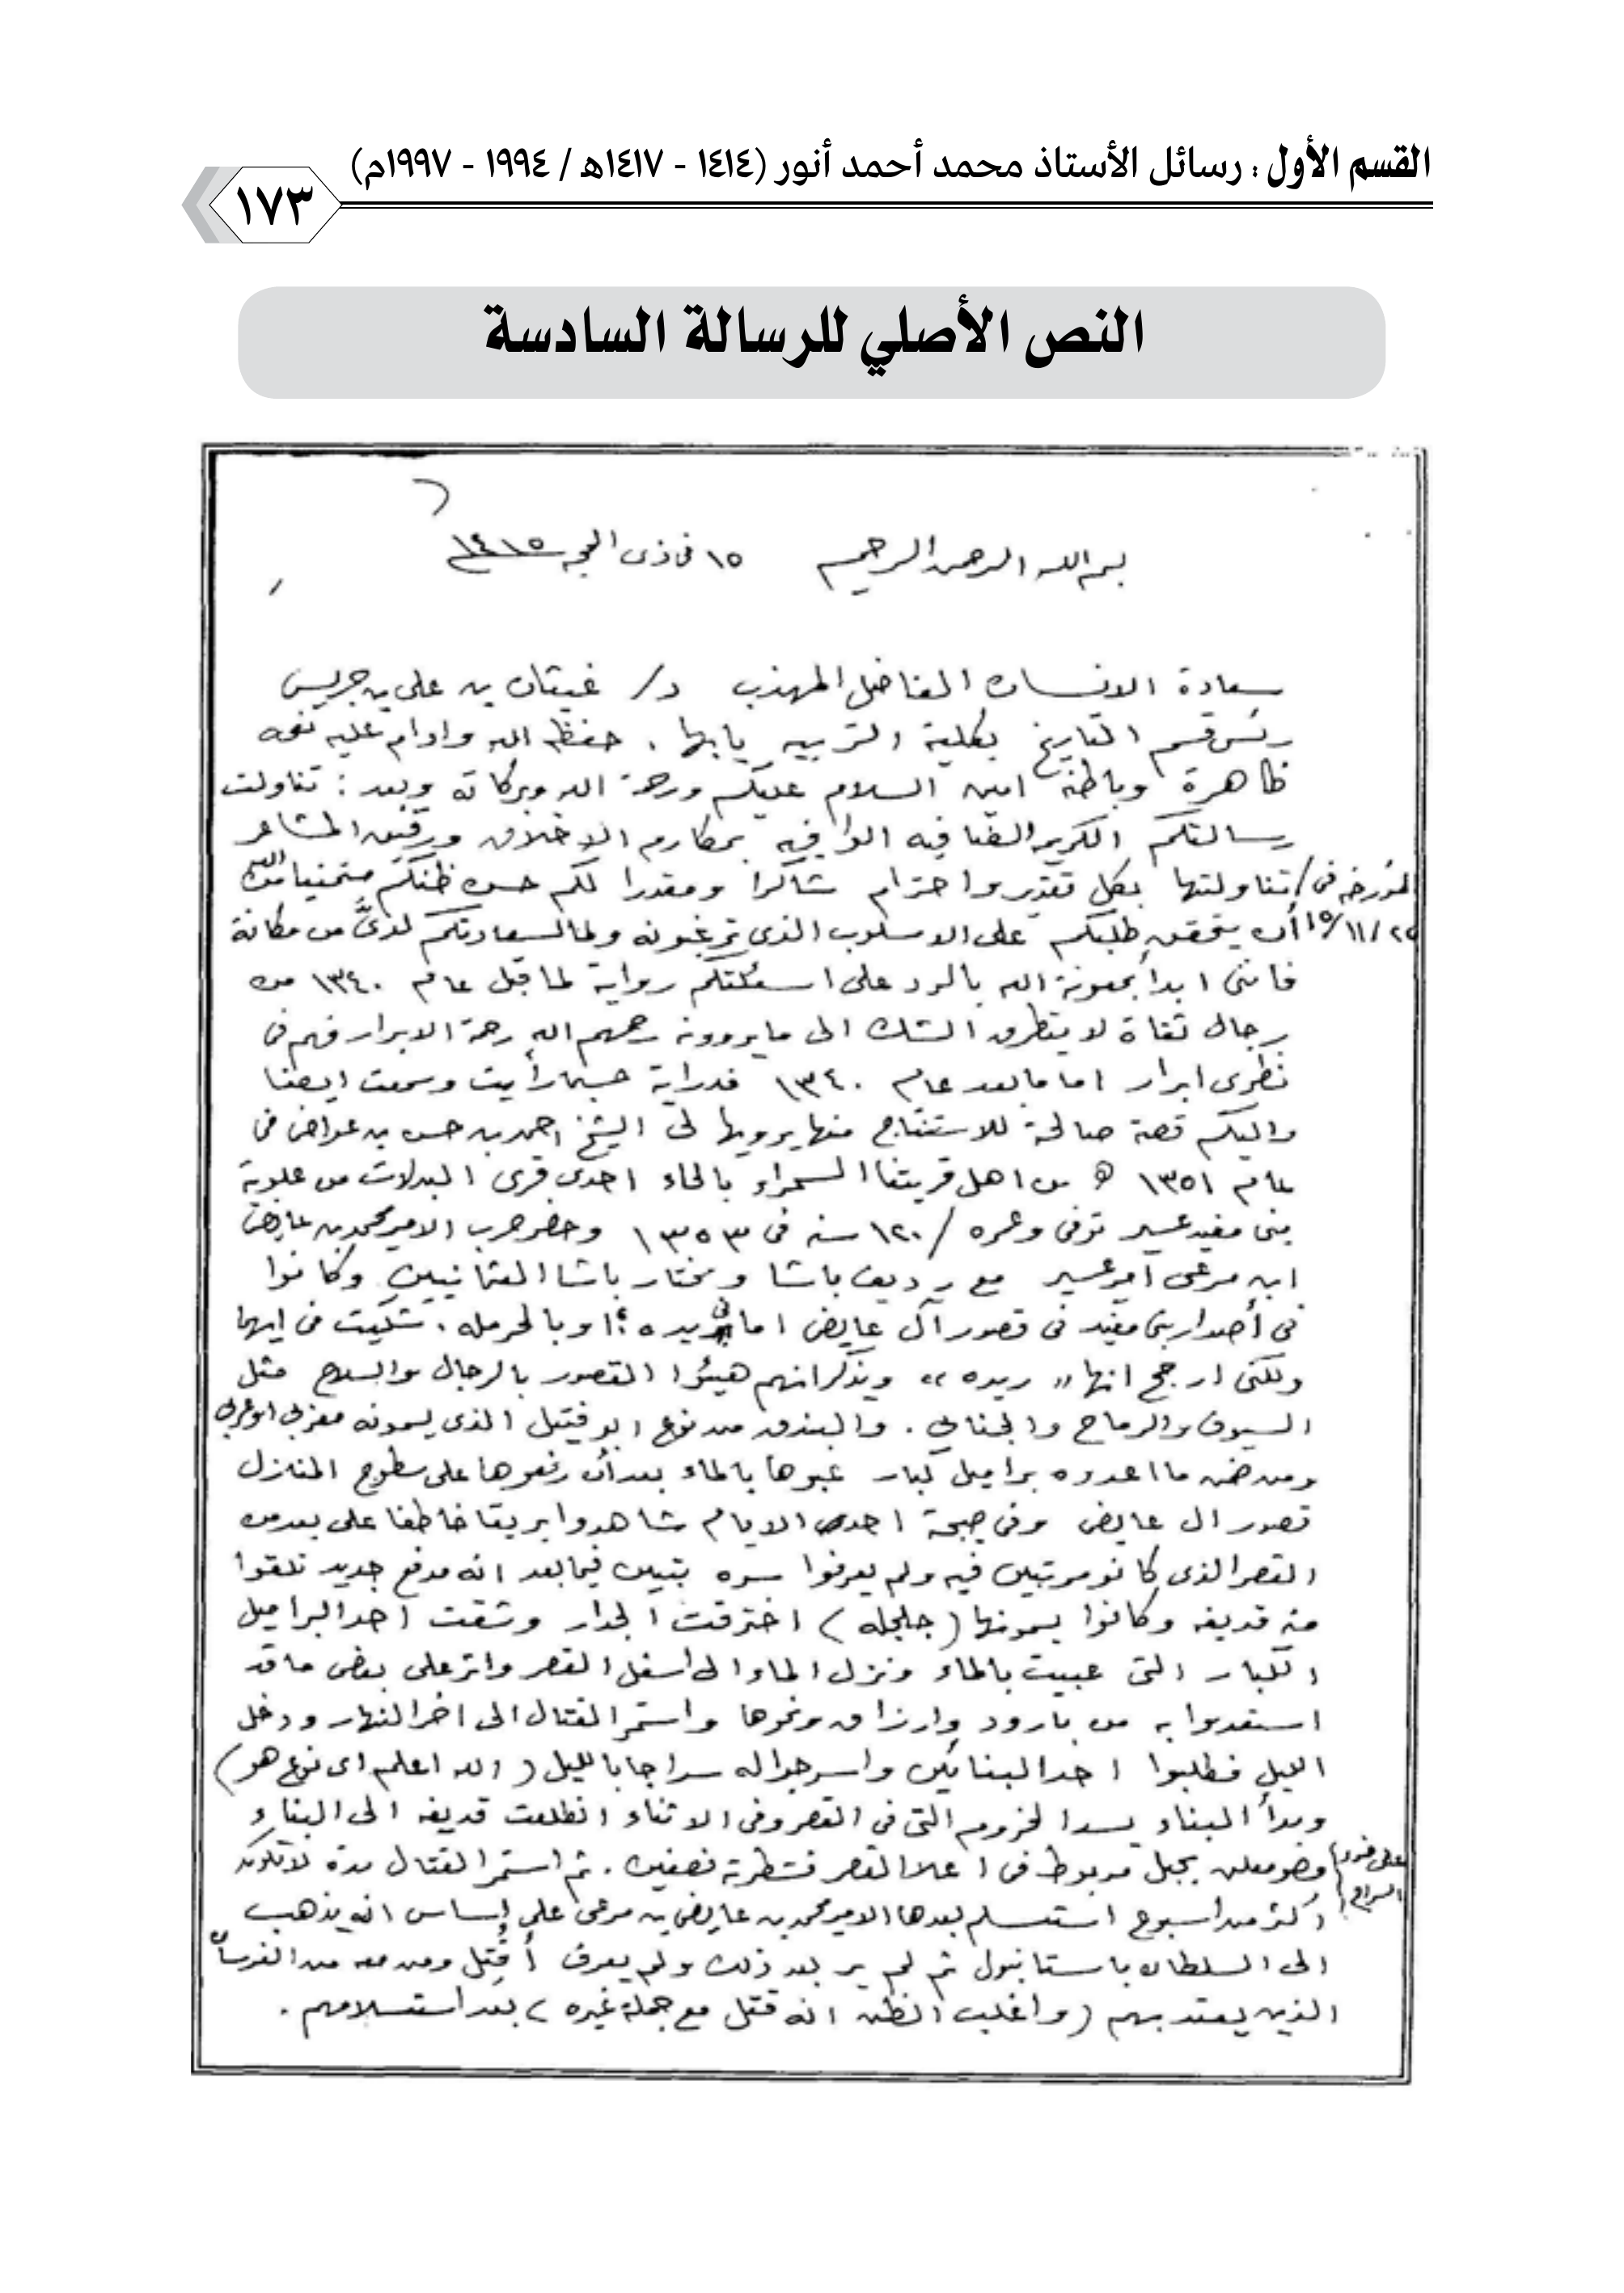 القسم الأول : رسائل الأستاذ محمد أحمد أنور (١٤١٤ - ١٤١٧هـ / ١٩٩٤ - ١٩٩٧م)
١٧٣
النص الأصلي للرسالة السادسة
بسم الله الرحمن الرحيم ١٥ فى ذى الحجه ١٤١٥
سعادة الانسان الفاضل المهذب د/ غيثان بن على بن جريس
رئيس قسم التاريخ بكلية التربيه بابها . حفظه الله وادام عليه نعمه
ظاهرة وباطنة امين السلام عليكم ورحمة الله وبركاته وبعد : تناولت
رسالتكم الكريمه الضافيه الوافيه بمكارم الاخلاق ورقيق المشاعر
المؤرخه فى / تناولتها بكل تقدير واحترام شاكرا ومقدرا لكم حسن ظنكم متمنيا من الله
١٥/١١/٢٤ أن يتحقق طلبكم على الاسلوب الذى ترغبونه ولما لسعادتكم لدىَّ من مكانة
فاننى ابدأ بمعونة الله بالرد على اسئلتكم رواية لما قبل عام ١٣٤٠ من
رجال ثقاة لا يتطرق الشك الى مايروونه رحمهم الله رحمة الابرار فهم فى
نظرى ابرار اما مابعد عام ١٣٤٠ فدراية حسبما رأيت وسمعت ايضا
واليكم قصة صالحة للاستنتاج منها يرويها لى الشيخ احمد بن حسن بن عواض فى
عام ١٣٥١ هـ من اهل قريتنا السمراء بالحاء احدى قرى البدلات من علوية
بنى مغيد عسير توفى وعمره /١٢٠ سنه فى ١٣٥٣ وحضر حرب الامير محمد بن عايض
ابن مرعى امير عسير مع رديف باشا ومختار باشا العثمانيين وكانوا
فى أصدار بنى مغيد فى قصور آل عايض اما فى ريده ؟ او بالحرمله . شكيت فى ايهما
ولكنى ارجح انها " ريده " ويذكر انهم هيئوا القصور بالرجال والسلاح مثل
السيوف والرماح والجنابي . والبندق من نوع ابو فتيل الذى يسمونه مغربى او عربى
ومن ضمن ما اعدوه براميل كبار عبوها بالماء بعد أن رفعوها على سطوح المنازل
قصور ال عايض وفى صبحة احدى الايام شاهدوا بريقا خاطفا على بعد من
القصر الذى كانو مرتبين فيه ولم يعرفوا سره تبين فيما بعد انه مدفع جديد تلقوا
منه قديفه وكانوا يسمونها ( جلجله ) اخترقت الجدار وشقت احد البراميل
الكبار التى عبيت بالماء ونزل الماء الى اسفل القصر واثر على بعض ما قد
استعدوا به من بارود وارزاق ونحوها واستمر القتال الى اخر النهار ودخل
الليل فطلبوا احد البنائين واسرجوا له سراجا بالليل ( الله اعلم اى نوع هو )
وبدأ البناء يسد الخروم التى فى القصر وفى الاثناء انطلقت قديفه الى البناء
على ضوء السراج وهو معلق بحبل مربوط فى اعلا القصر فشطرته نصفين . ثم استمر القتال مدة لاتكون
اكثر من اسبوع استسلم بعدها الامير محمد بن عايض بن مرعى على اساس انه يذهب
الى السلطان باستانبول ثم لم ير بعد ذلك ولم يعرف أقُتل ومن معه من الفرسان
الذين يعتد بهم ( واغلب الظن انه قتل مع جملة غيره ) بعد استسلامهم .